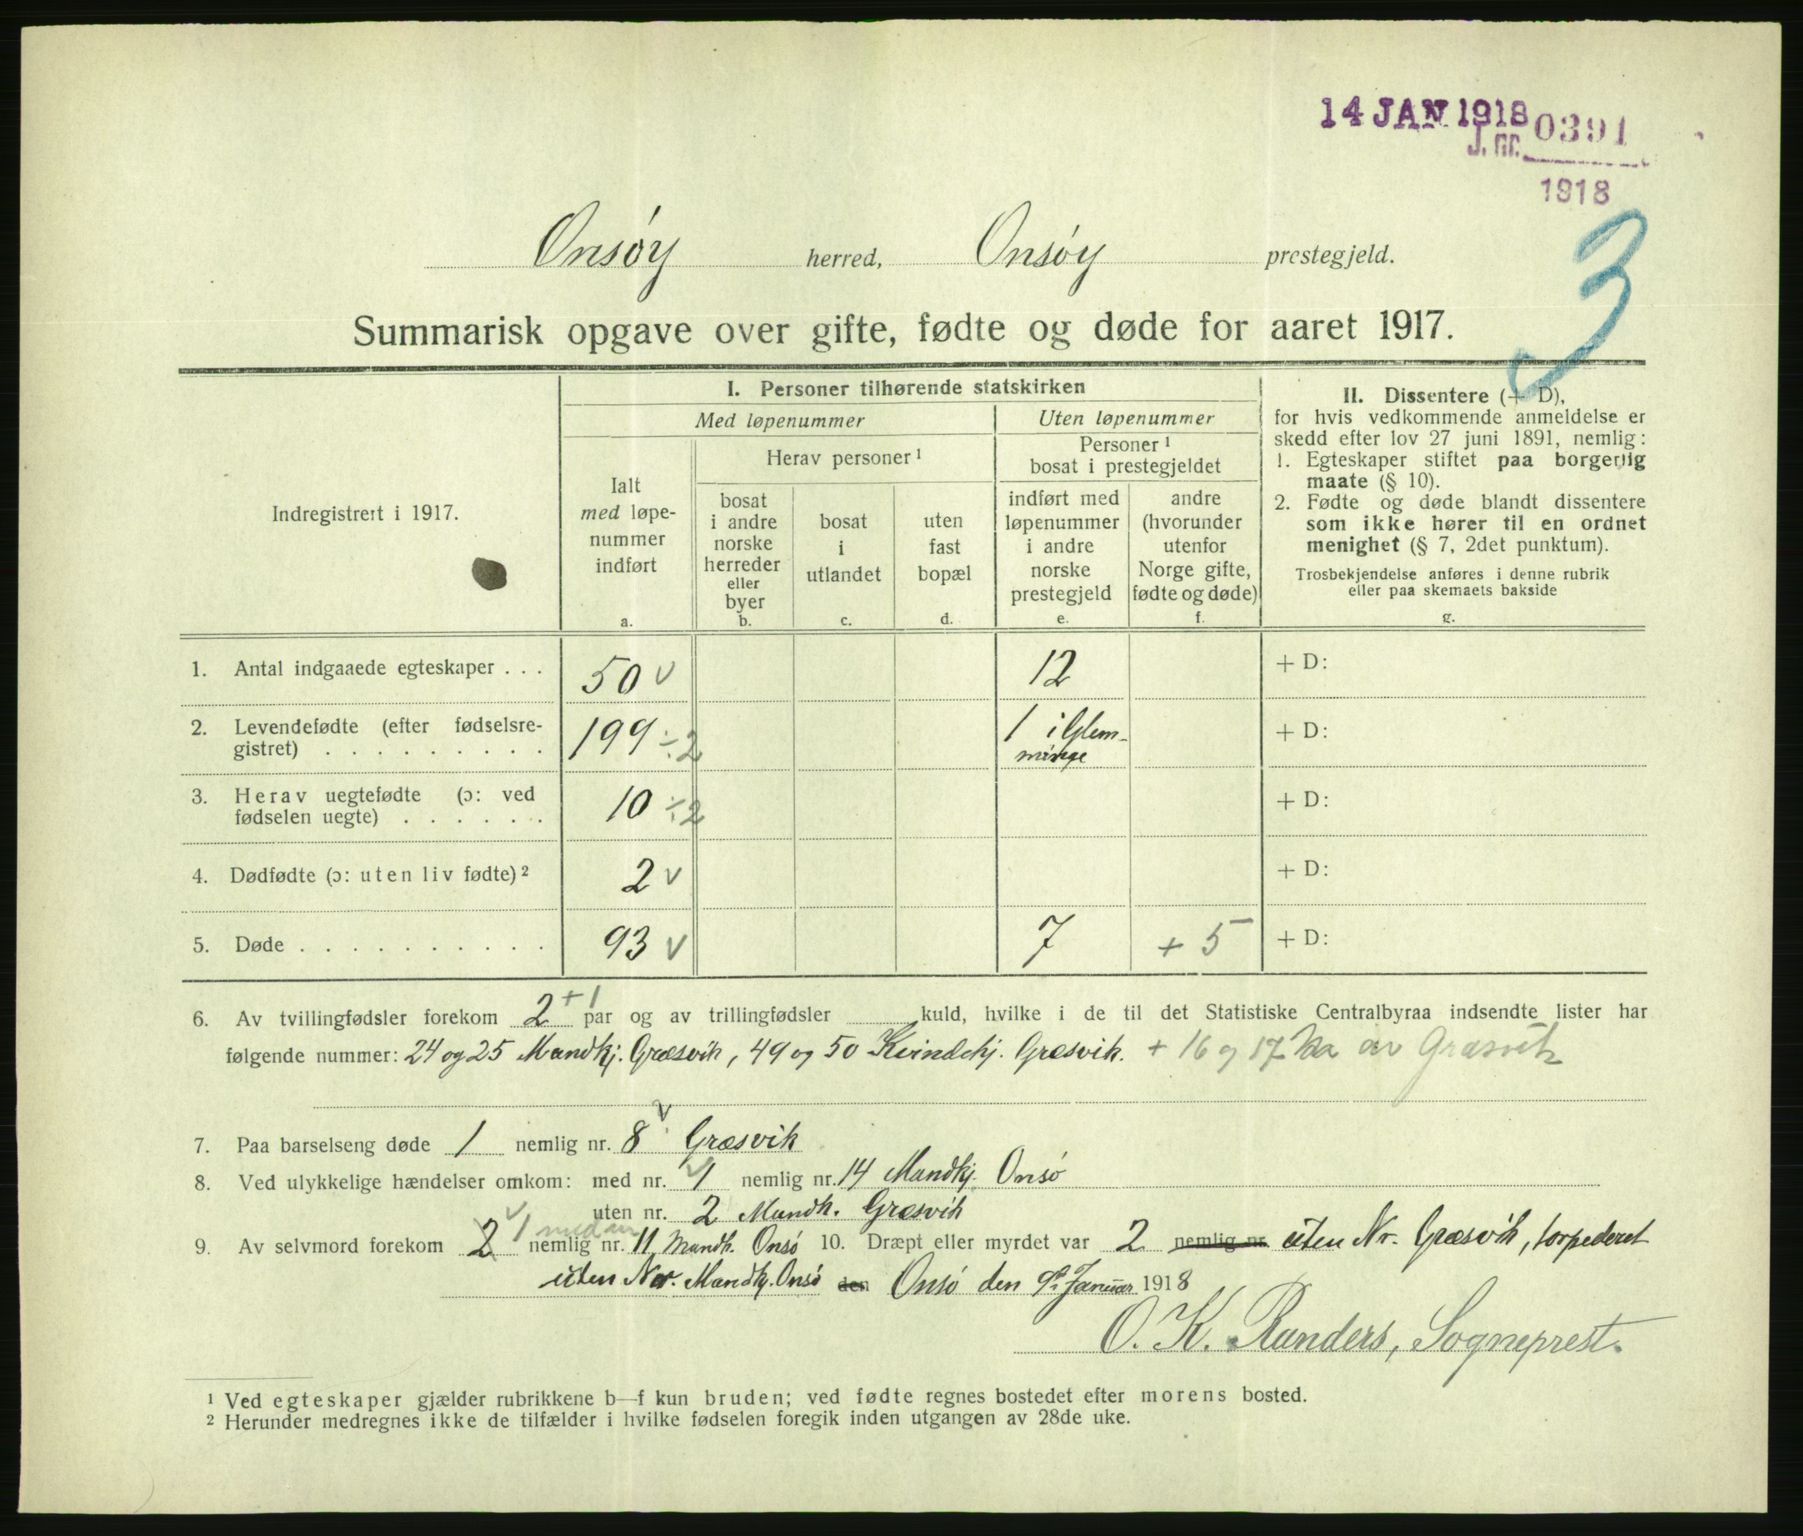 14 JAN 1918
J. nr. 0391
1918
3
Onsøy herred, Onsøy prestegjeld.
Summarisk opgave over gifte, fødte og døde for aaret 1917.
Indregistrert i 1917.
I. Personer tilhørende statskirken
Med løpenummer
Uten løpenummer
Ialt
med løpe-
nummer
indført
a.
Herav personer 1
bosat
i andre
norske
herreder
eller
byer
b.
bosat
i
utlandet
c.
uten
fast
bopæl
d.
Personer 1
bosat i prestegjeldet
indført med
løpenummer
i andre
norske
prestegjeld
e.
andre
(hvorunder
utenfor
Norge gifte,
fødte og døde)
f.
II. Dissentere (+ D),
for hvis vedkommende anmeldelse er
skedd efter lov 27 juni 1891, nemlig:
1. Egteskaper stiftet paa borgerlig
maate (§ 10).
2. Fødte og døde blandt dissentere
som ikke hører til en ordnet
menighet (§ 7, 2det punktum).
Trosbekjendelse anføres i denne rubrik
eller paa skemaets bakside
g.
1. Antal indgaaede egteskaper . . . 50 v 12 + D:
2. Levendefødte (efter fødselsre-
gistret) . . . . . . . . . 199 ÷2 1 i Glem-
minge + D:
3. Herav uegtefødte (ɔ: ved
fødselen uegte) . . . . . . 10 ÷2 + D:
4. Dødfødte (ɔ: uten liv fødte) 2 2 v + D:
5. Døde . . . . . . . . . . 93 v 7 + 5 + D:
6. Av tvillingfødsler forekom 2 +1 par og av trillingfødsler kuld, hvilke i de til det Statistiske Centralbyraa indsendte lister har
følgende nummer: 24 og 25 Mandkj. Græsvik, 49 og 50 Kvindekj. Græsvik. + 16 og 17 av Græsvik
7. Paa barselseng døde 1 nemlig nr. 8 v Græsvik
8. Ved ulykkelige hændelser omkom: med nr. v 1 nemlig nr. 14 Mandkj. Onsø
uten nr. 2 Mandk. Græsvik
9. Av selvmord forekom 2 v 1 med nr nemlig nr. 11 Mandk. Onsø 10. Dræpt eller myrdet var 2 nemlig nr. uten Nr. Græsvik, torpederet
uten Nr. Mandkj. Onsø den Onsø den 9de Januar 1918
O. K. Randers, Sogneprest.
1 Ved egteskaper gjælder rubrikkene b—f kun bruden; ved fødte regnes bostedet efter morens bosted.
2 Herunder medregnes ikke de tilfælder i hvilke fødselen foregik inden utgangen av 28de uke.